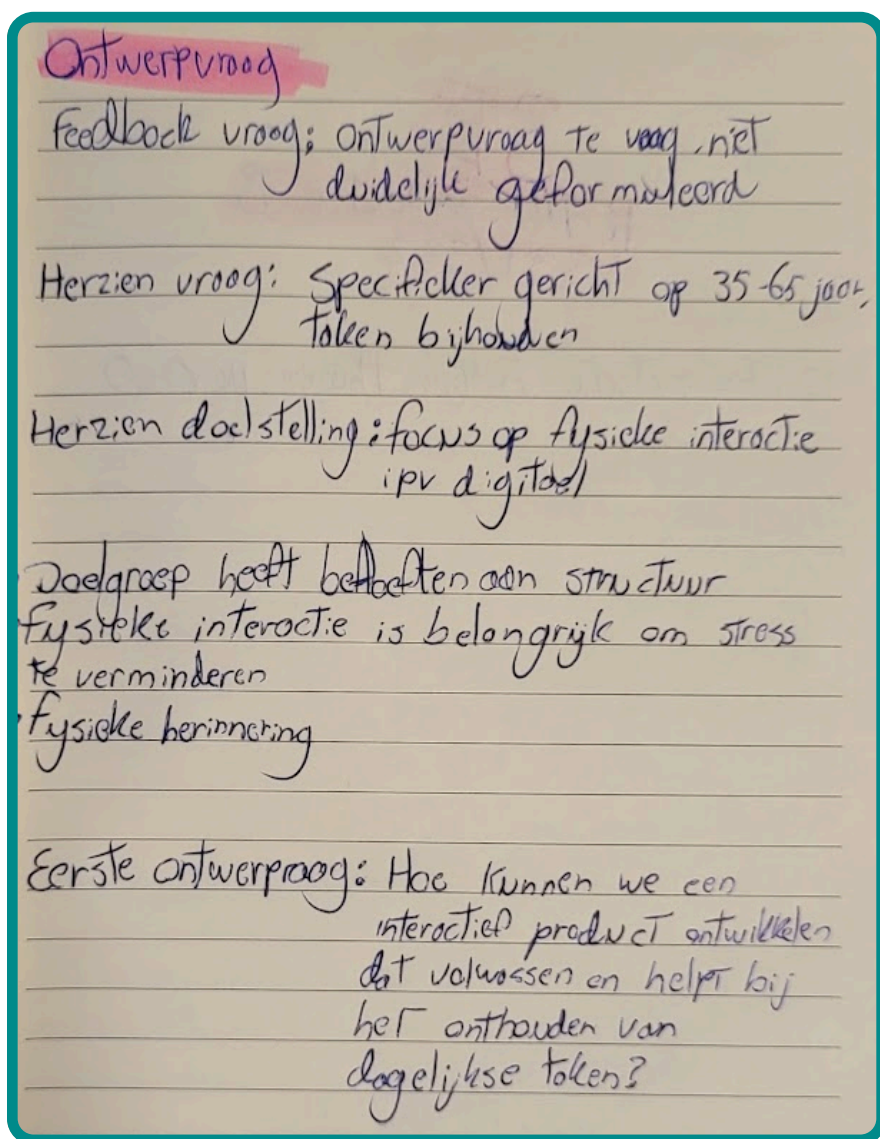 Ontwerpvraag
Feedback vraag: ontwerpvraag te vaag, niet
duidelijk geformuleerd
Herzien vraag: Specifieker gericht op 35-65 jaar,
taken bijhouden
Herzien doelstelling: focus op fysieke interactie
ipv digitaal
Doelgroep heeft behoeften aan structuur
fysieke interactie is belangrijk om stress
te verminderen
• fysieke herinnering
Eerste ontwerpraag: Hoe kunnen we een
interactief product ontwikkelen
dat volwassen en helpt bij
het onthouden van
dagelijkse taken?